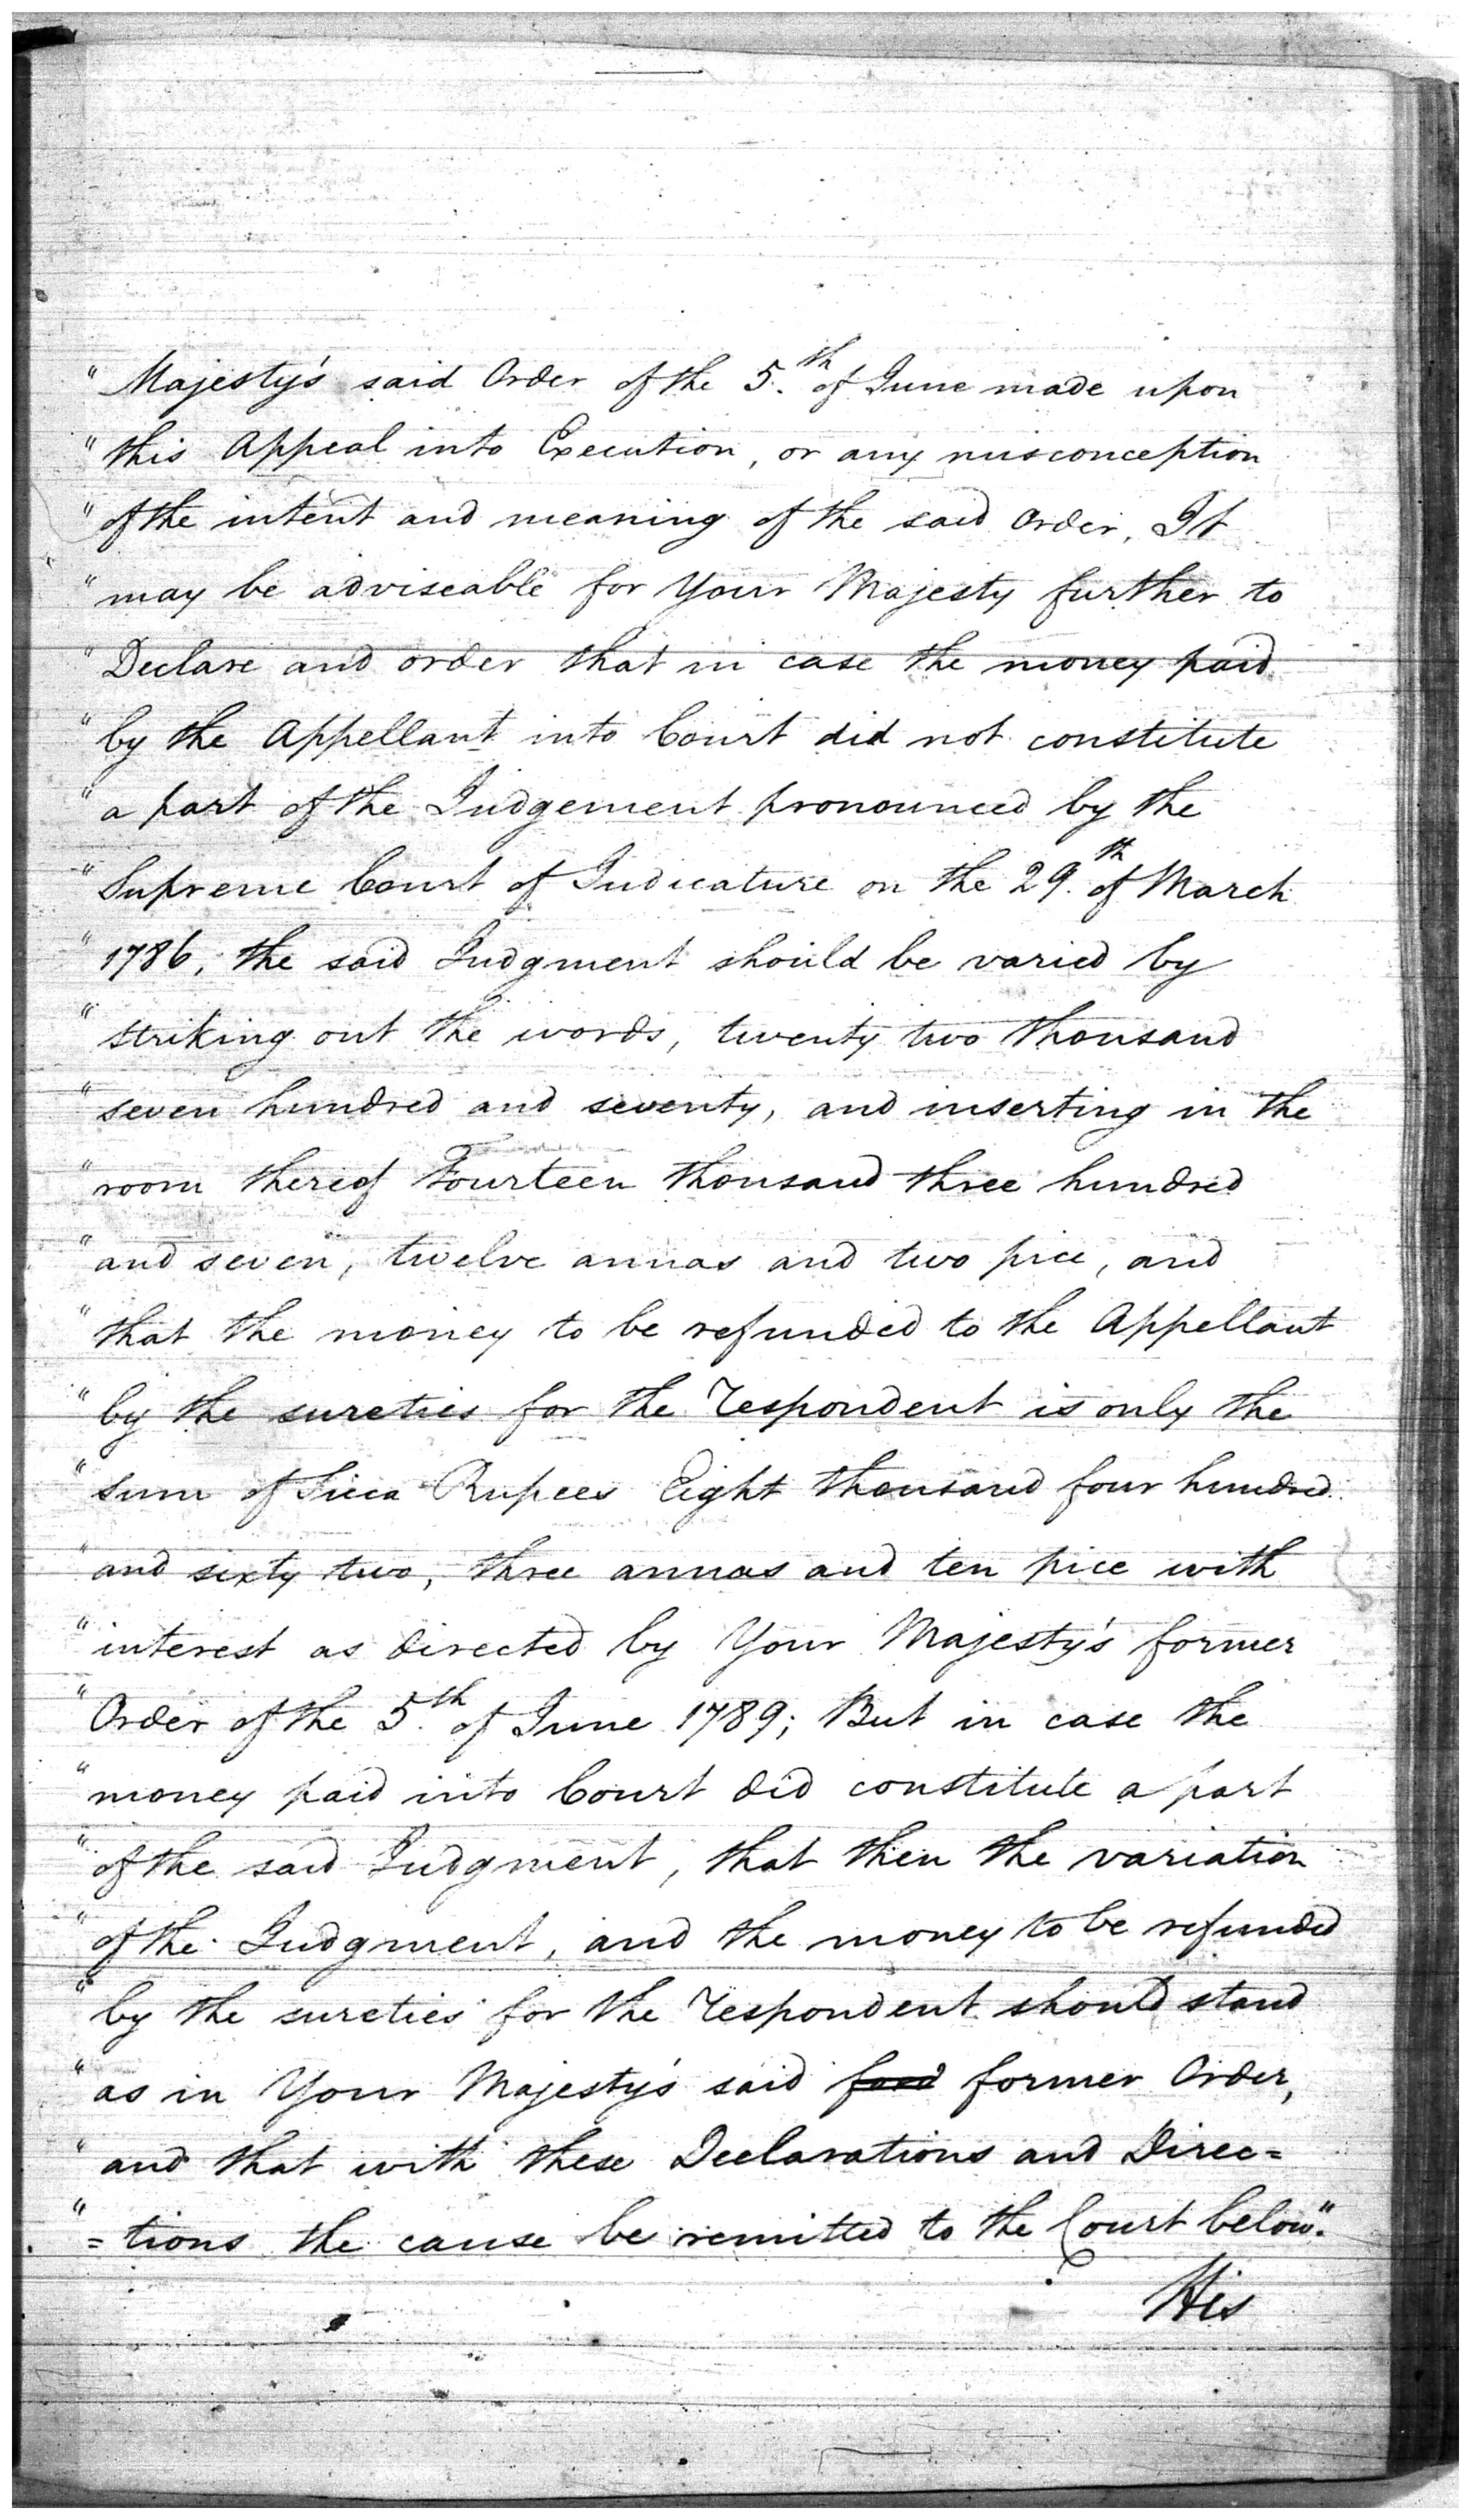 " Majesty's said Order of the 5.th of June made upon
" this Appeal into Execution, or any misconception
" of the intent and meaning of the said Order, It
" may be adviseable for Your Majesty further to
" Declare and order that in case the money paid
" by the Appellant into Court did not constitute
" a part of the Judgement pronounced by the
" Supreme Court of Judicature on the 29.th of March
" 1786, the said Judgment should be varied by
" striking out the words, twenty two thousand
" seven hundred and seventy, and inserting in the
" room thereof Fourteen thousand three hundred
" and seven, twelve annas and two pice, and
" that the money to be refunded to the Appellant
" by the sureties for the Respondent is only the
" sum of Sicca Rupees Eight thousand four hundred
" and sixty two, three annas and ten pice with
" interest as directed by Your Majesty's former
" Order of the 5.th of June 1789; But in case the
" money paid into Court did constitute a part
" of the said Judgment, that then the variation
" of the Judgment, and the money to be refunded
" by the sureties for the Respondent should stand
" as in Your Majesty's said former Order,
" and that with these Declarations and Direc=
" =tions the cause be remitted to the Court below."
His